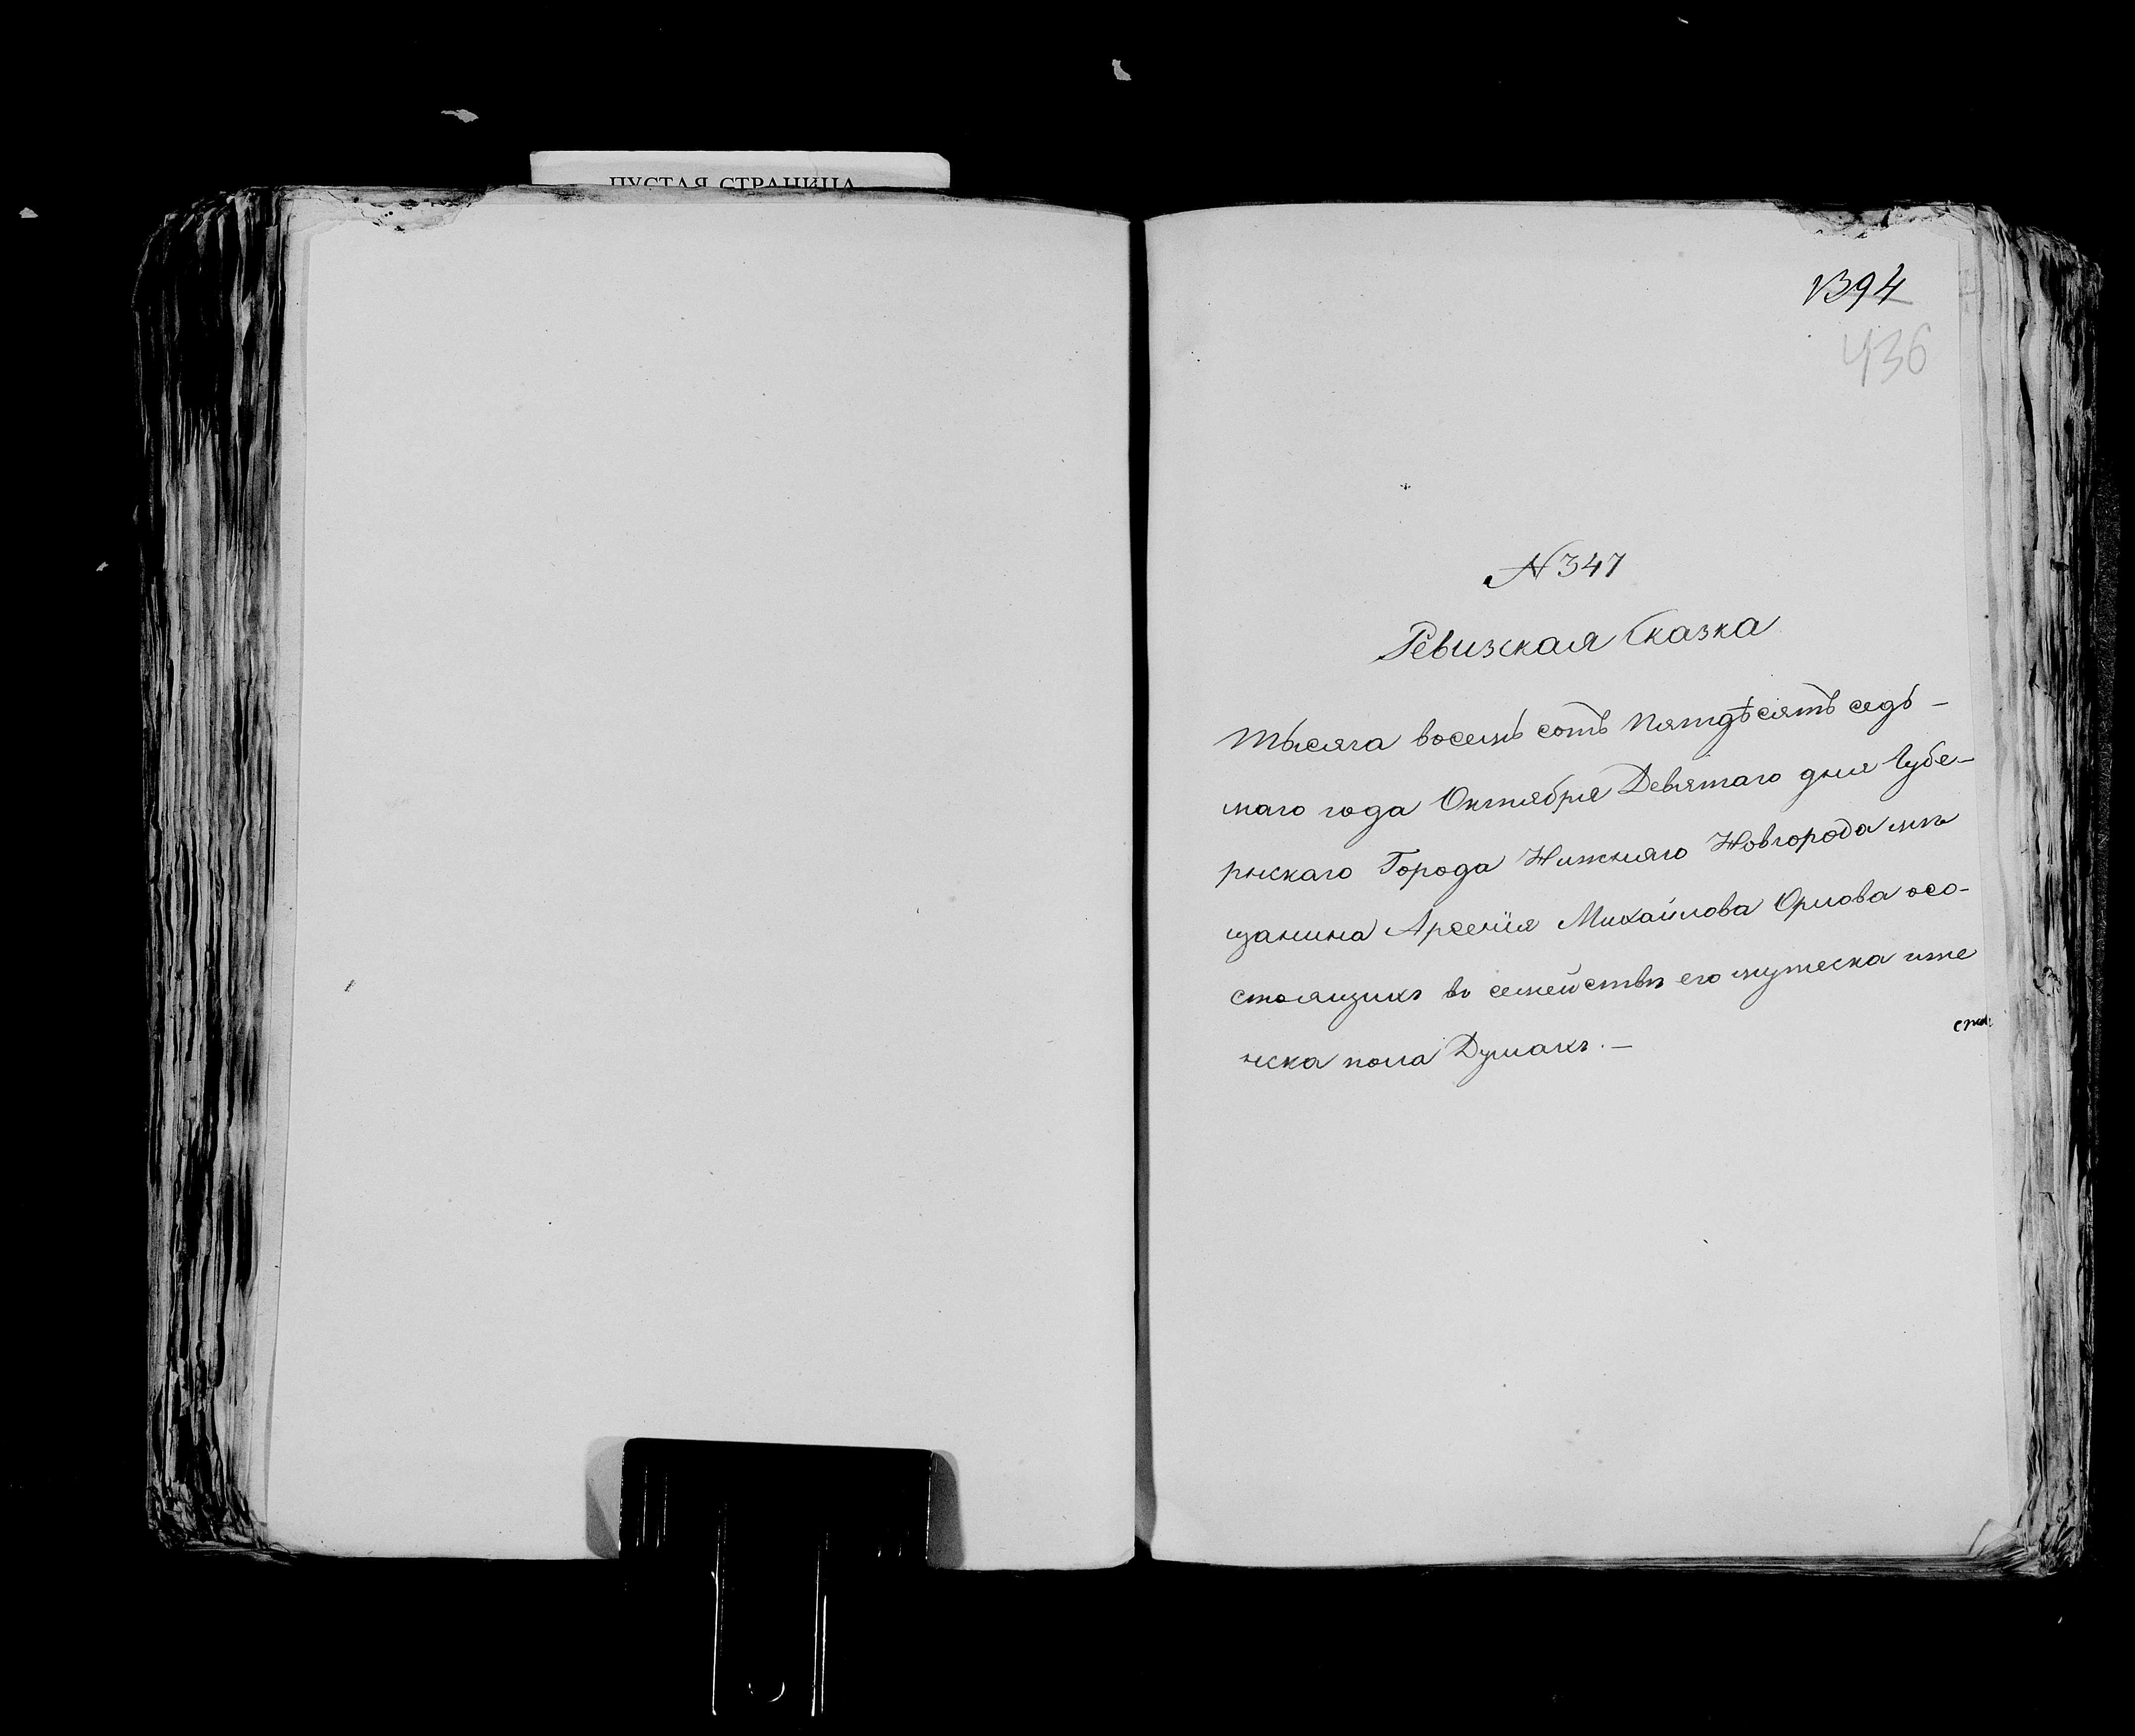 ПУСТАЯ СТРАНИЦА
1394
436
№ 347
Ревизская Сказка
Тысяча восемь сотъ Пятдѣсятъ седь-
маго года Октября Девятаго дня Губе-
рнскаго Города Нижняго Новгорода мѣ
щанина Арсенія Михайлова Орлова осо-
стоящихъ въ семействѣ его мужеска иже
нска пола Душахъ.-